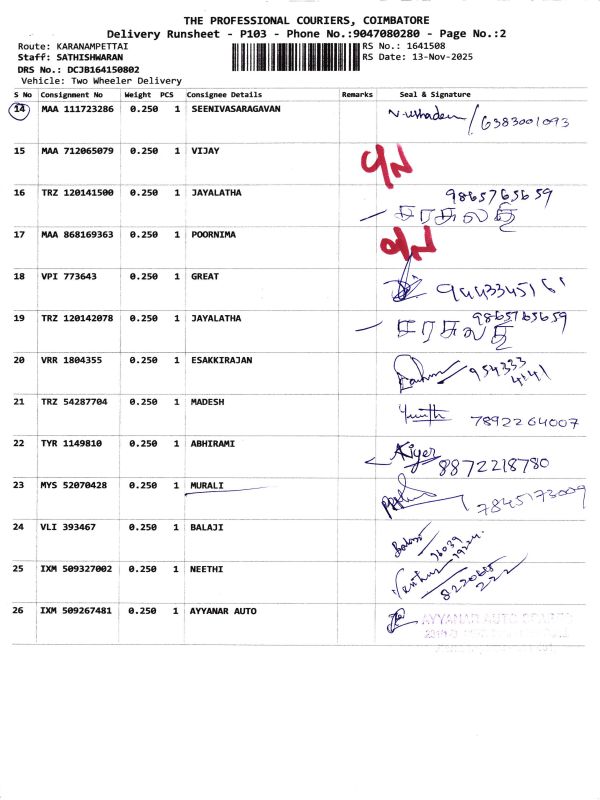 THE PROFESSIONAL COURIERS, COIMBATORE
Delivery Runsheet - P103 - Phone No.:9047080280 - Page No.:2
Route: KARANAMPETTAI RS No.: 1641508
Staff: SATHISHWARAN RS Date: 13-Nov-2025
DRS No.: DCJB164150802
Vehicle: Two Wheeler Delivery
S No Consignment No Weight PCS Consignee Details Remarks Seal & Signature
14 MAA 111723286 0.250 1 SEENIVASARAGAVAN /6383001093
15 MAA 712065079 0.250 1 VIJAY
16 TRZ 120141500 0.250 1 JAYALATHA 9865765659
17 MAA 868169363 0.250 1 POORNIMA
18 VPI 773643 0.250 1 GREAT
19 TRZ 120142078 0.250 1 JAYALATHA 9865765659
20 VRR 1804355 0.250 1 ESAKKIRAJAN 954333
4141
21 TRZ 54287704 0.250 1 MADESH 7892264007
22 TYR 1149810 0.250 1 ABHIRAMI 8872218780
23 MYS 52070428 0.250 1 MURALI 7845173009
24 VLI 393467 0.250 1 BALAJI
25 IXM 509327002 0.250 1 NEETHI 8220685
222
26 IXM 509267481 0.250 1 AYYANAR AUTO AYYANAR AUTO